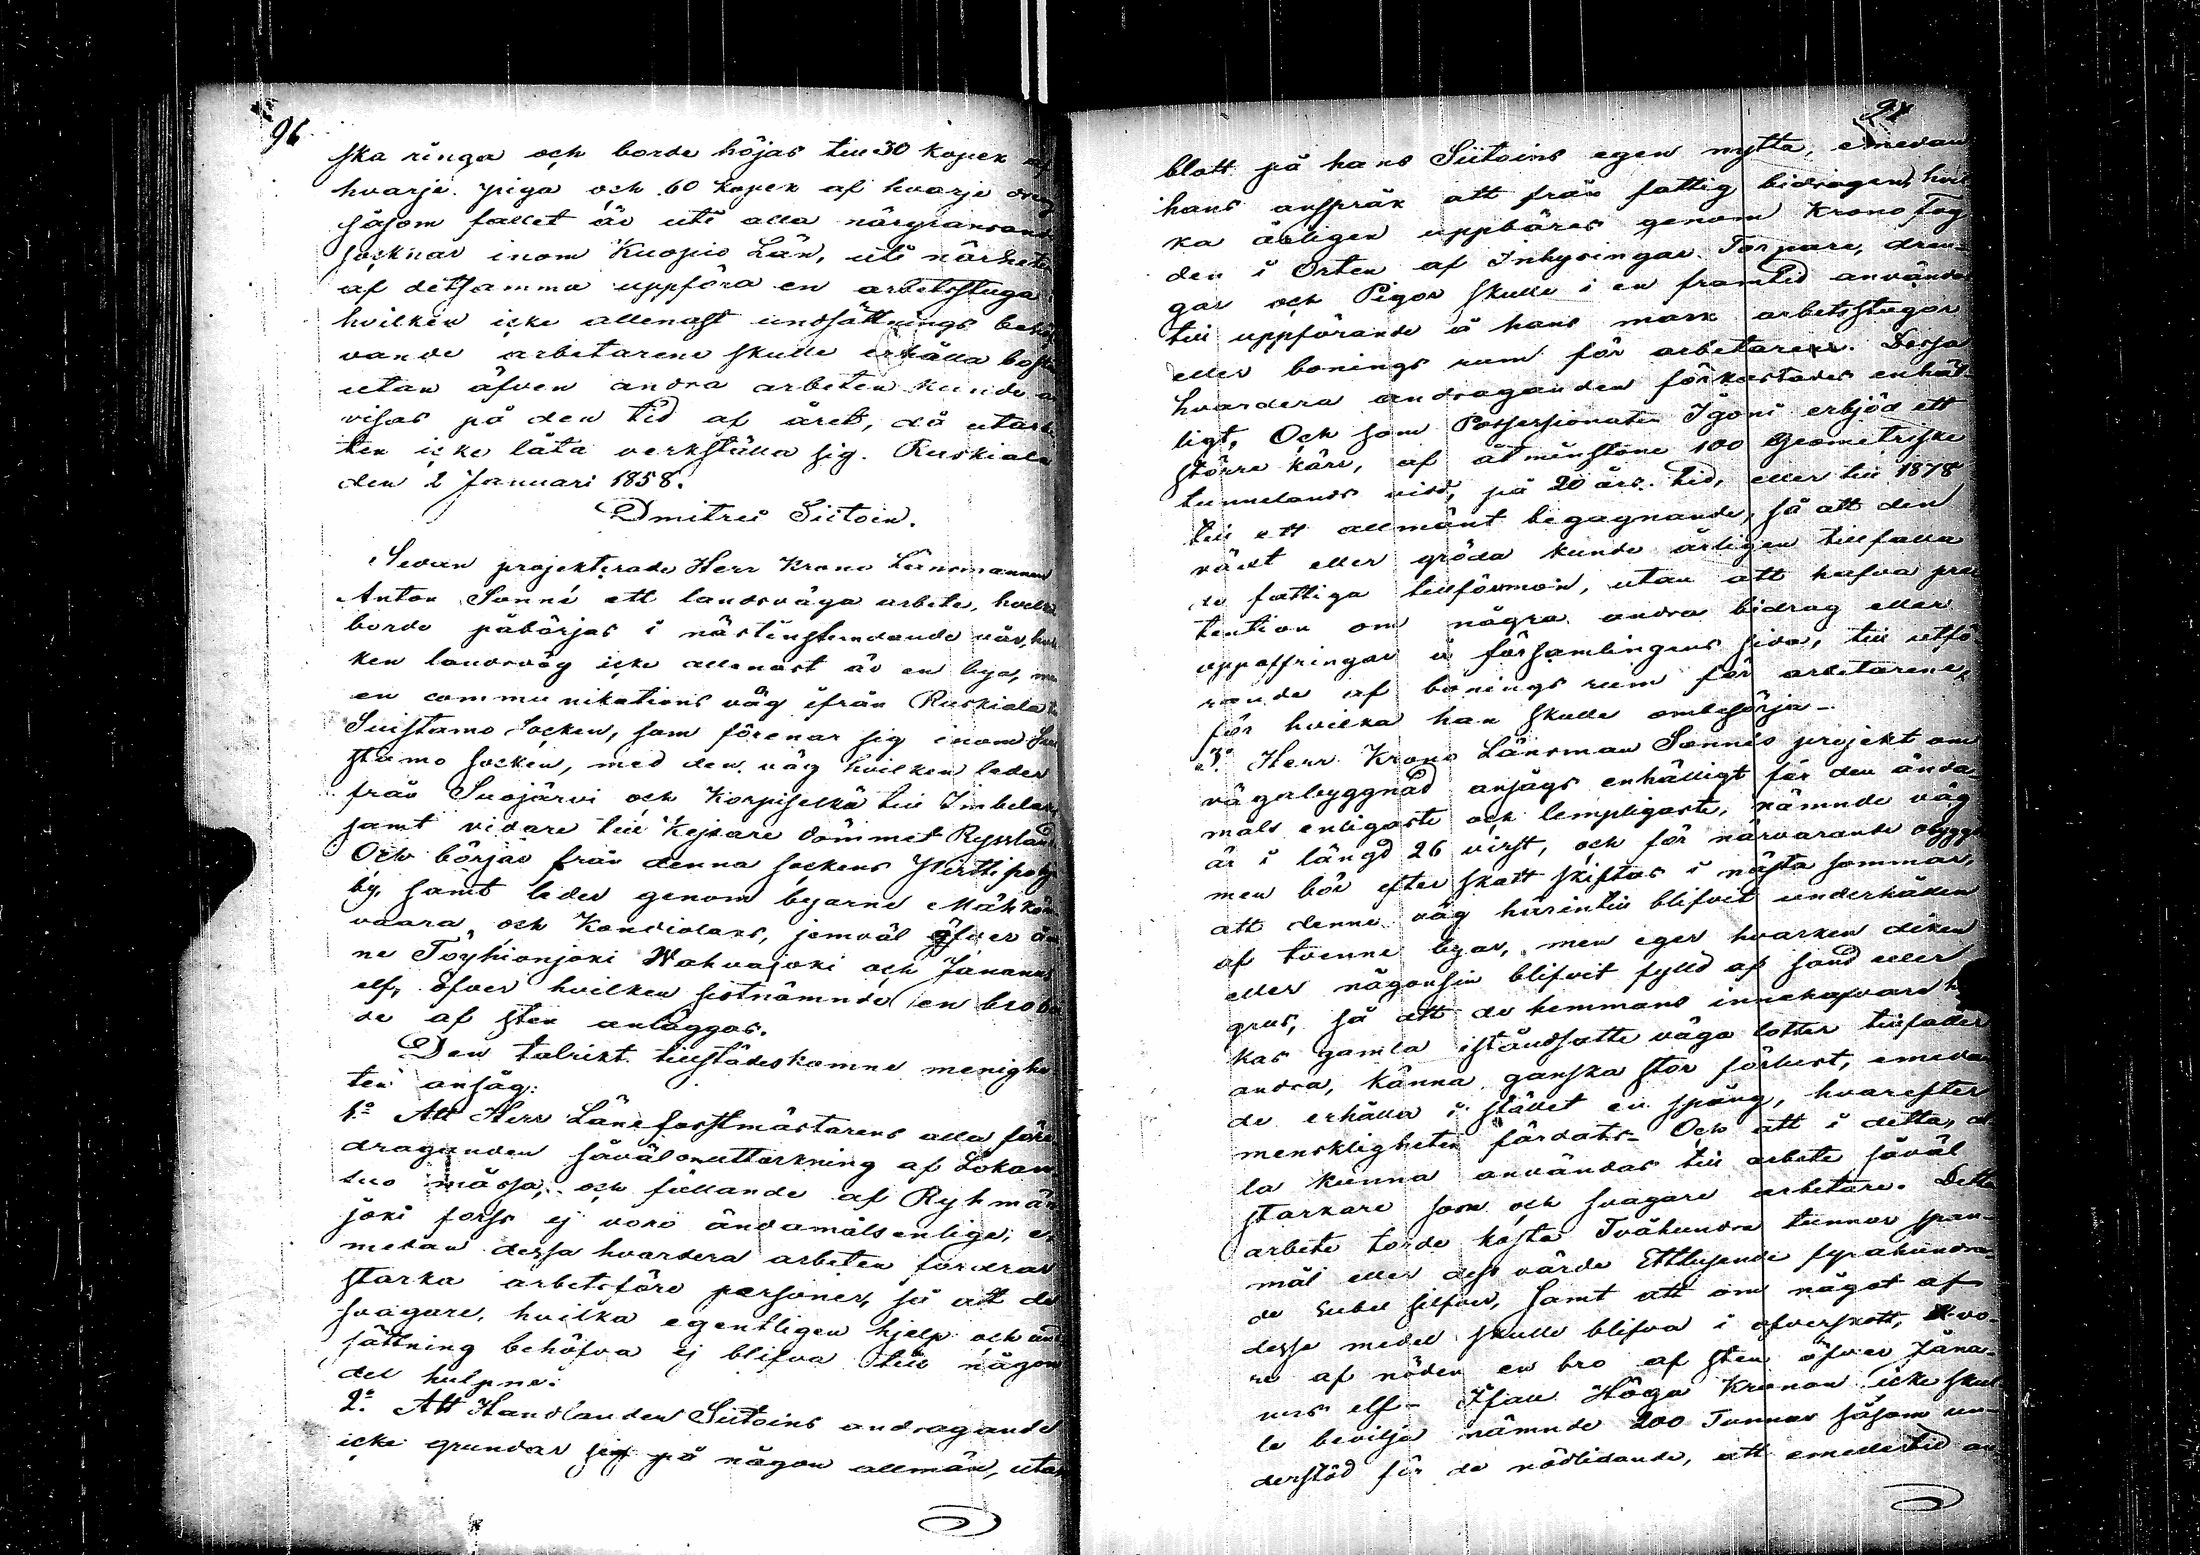 96
ska ringa och borde höjas till 30 kopek af
hvarje piga och 60 kopek af hvarje dreng
såsom fallet är uti alla närgränsande
socknar inom Kuopio Län, uti närheten
af detsamma uppföra en arbetsstuga
hvilken icke allenast undsättnings behöf
vande arbetarene skulle erhålla bostad
utan äfven andra arbeten kunde an
visas på den tid af året, då utarbe
ten icke låta verkställa sig. Ruskiala
den 2 Januari 1858.
Dmitrei Siitoin.
Sedan projekterade Herr Krono Länsmannen
Anton Sonné ett landsväga arbete, hvilket
borde påbörjas i nästinstundande vår, hvil
ken landsväg icke allenast är en bya, men
en communikations väg ifrån Ruskiala till
Suistamo Socken, som förenar sig inom Sui
stamo socken, med den väg hvilken leder
från Suojärvi och Korpiselkä till Imbelaks
samt vidare till Kejsare dömmet Ryssland
Och börjas från denna sockens Pirttipohja
by, samt leder genom byarne Mähkön
vaara och Kondiolans, jemväl öfver ån
ne Töyhionjoki Wahvajoki och Jänanus
elf, öfver hvilken sistnämnde en bro bor
de af sten anläggas.
Den talrikt tillstädeskomne menighe
ten ansåg:
1:o Att Herr Länsforstmästarens alla före
draganden såväl om uttorkning af Lokan
suo måssa, och fällande af Ryhmän
joki forss ej voro ändamålsenliga, e-
medan dessa hvardera arbeten fordrar
starka arbetsföre personer, så att de
svagare, hvilka egentligen hjelp och und
sättning behöfva ej blifva till någon
del hulpne.
2:o Att Handlanden Siitoins andragande
icke grundar sig på någon allmän, utan
97
blott på hans Siitoins egen nytta, emedan
hans anspråk att från fattig bidragen, hvil
ka årligen uppbäres genom Krono Fog
den i Orten af Inhysingar Torpare, dren-
gar och Pigor skulle i en framtid användas
till uppförande å hans mark arbetsstugor
eller bonings rum för arbetarene. Dessa
hvardera andraganden förkastades enhäl-
ligt, Och som Possessionaten Igoni erbjöd ett
större kärr, af åtminstone 100 Geometriske
tunnelands vidd, på 20 års tid, eller till 1878
till ett allmänt begagnande, så att den
växt eller gröda kunde årligen tillfalla
de fattiga tillförmon, utan att hafva pre
tention om några andra bidrag eller
uppoffringar å församlingens sida, till utfö
rande af bonings rum för arbetarene,
för hvilka han skulle ombesörja-
3:o Herr Krono Länsman Sonnés projekt om
vägabyggnad ansågs enhälligt för den ända-
måls enligaste och lempligaste, nämnde väg
är i längd 26 virst, och för närvarande obyggd
men bör efter skatt skiftas i nästa sommar,
att denne väg härintill blifvit underhållen
af tvenne byar, men eger hvarken diken
eller någonsin blifvit fylld af sand eller
grus, så att de hemmans innehafvare hvil
kas gamla iståndsatte väga lotter tillfaller
andra, känna ganska stor förlust, emedan
de erhålla i stället en spång, hvarefter
menskligheten färdats- Och att i detta, al
la kunna användas till arbete såväl
starkare som och svagare arbetare. Detta
arbete torde kosta Tvåhundra tunnor span-
mål eller dess värde Ettusende fyrahundra-
de rubel silfver, Samt att om något af
desse medel skulle blifva i öfverskott, vo-
re af nöden en bro af sten öfver Jäna-
nus elf- Ifall Höga Kronan icke skul
le bevilja nämnde 200 Tunnor såsom un-
derstöd för de nödlidande, att emedlertid an